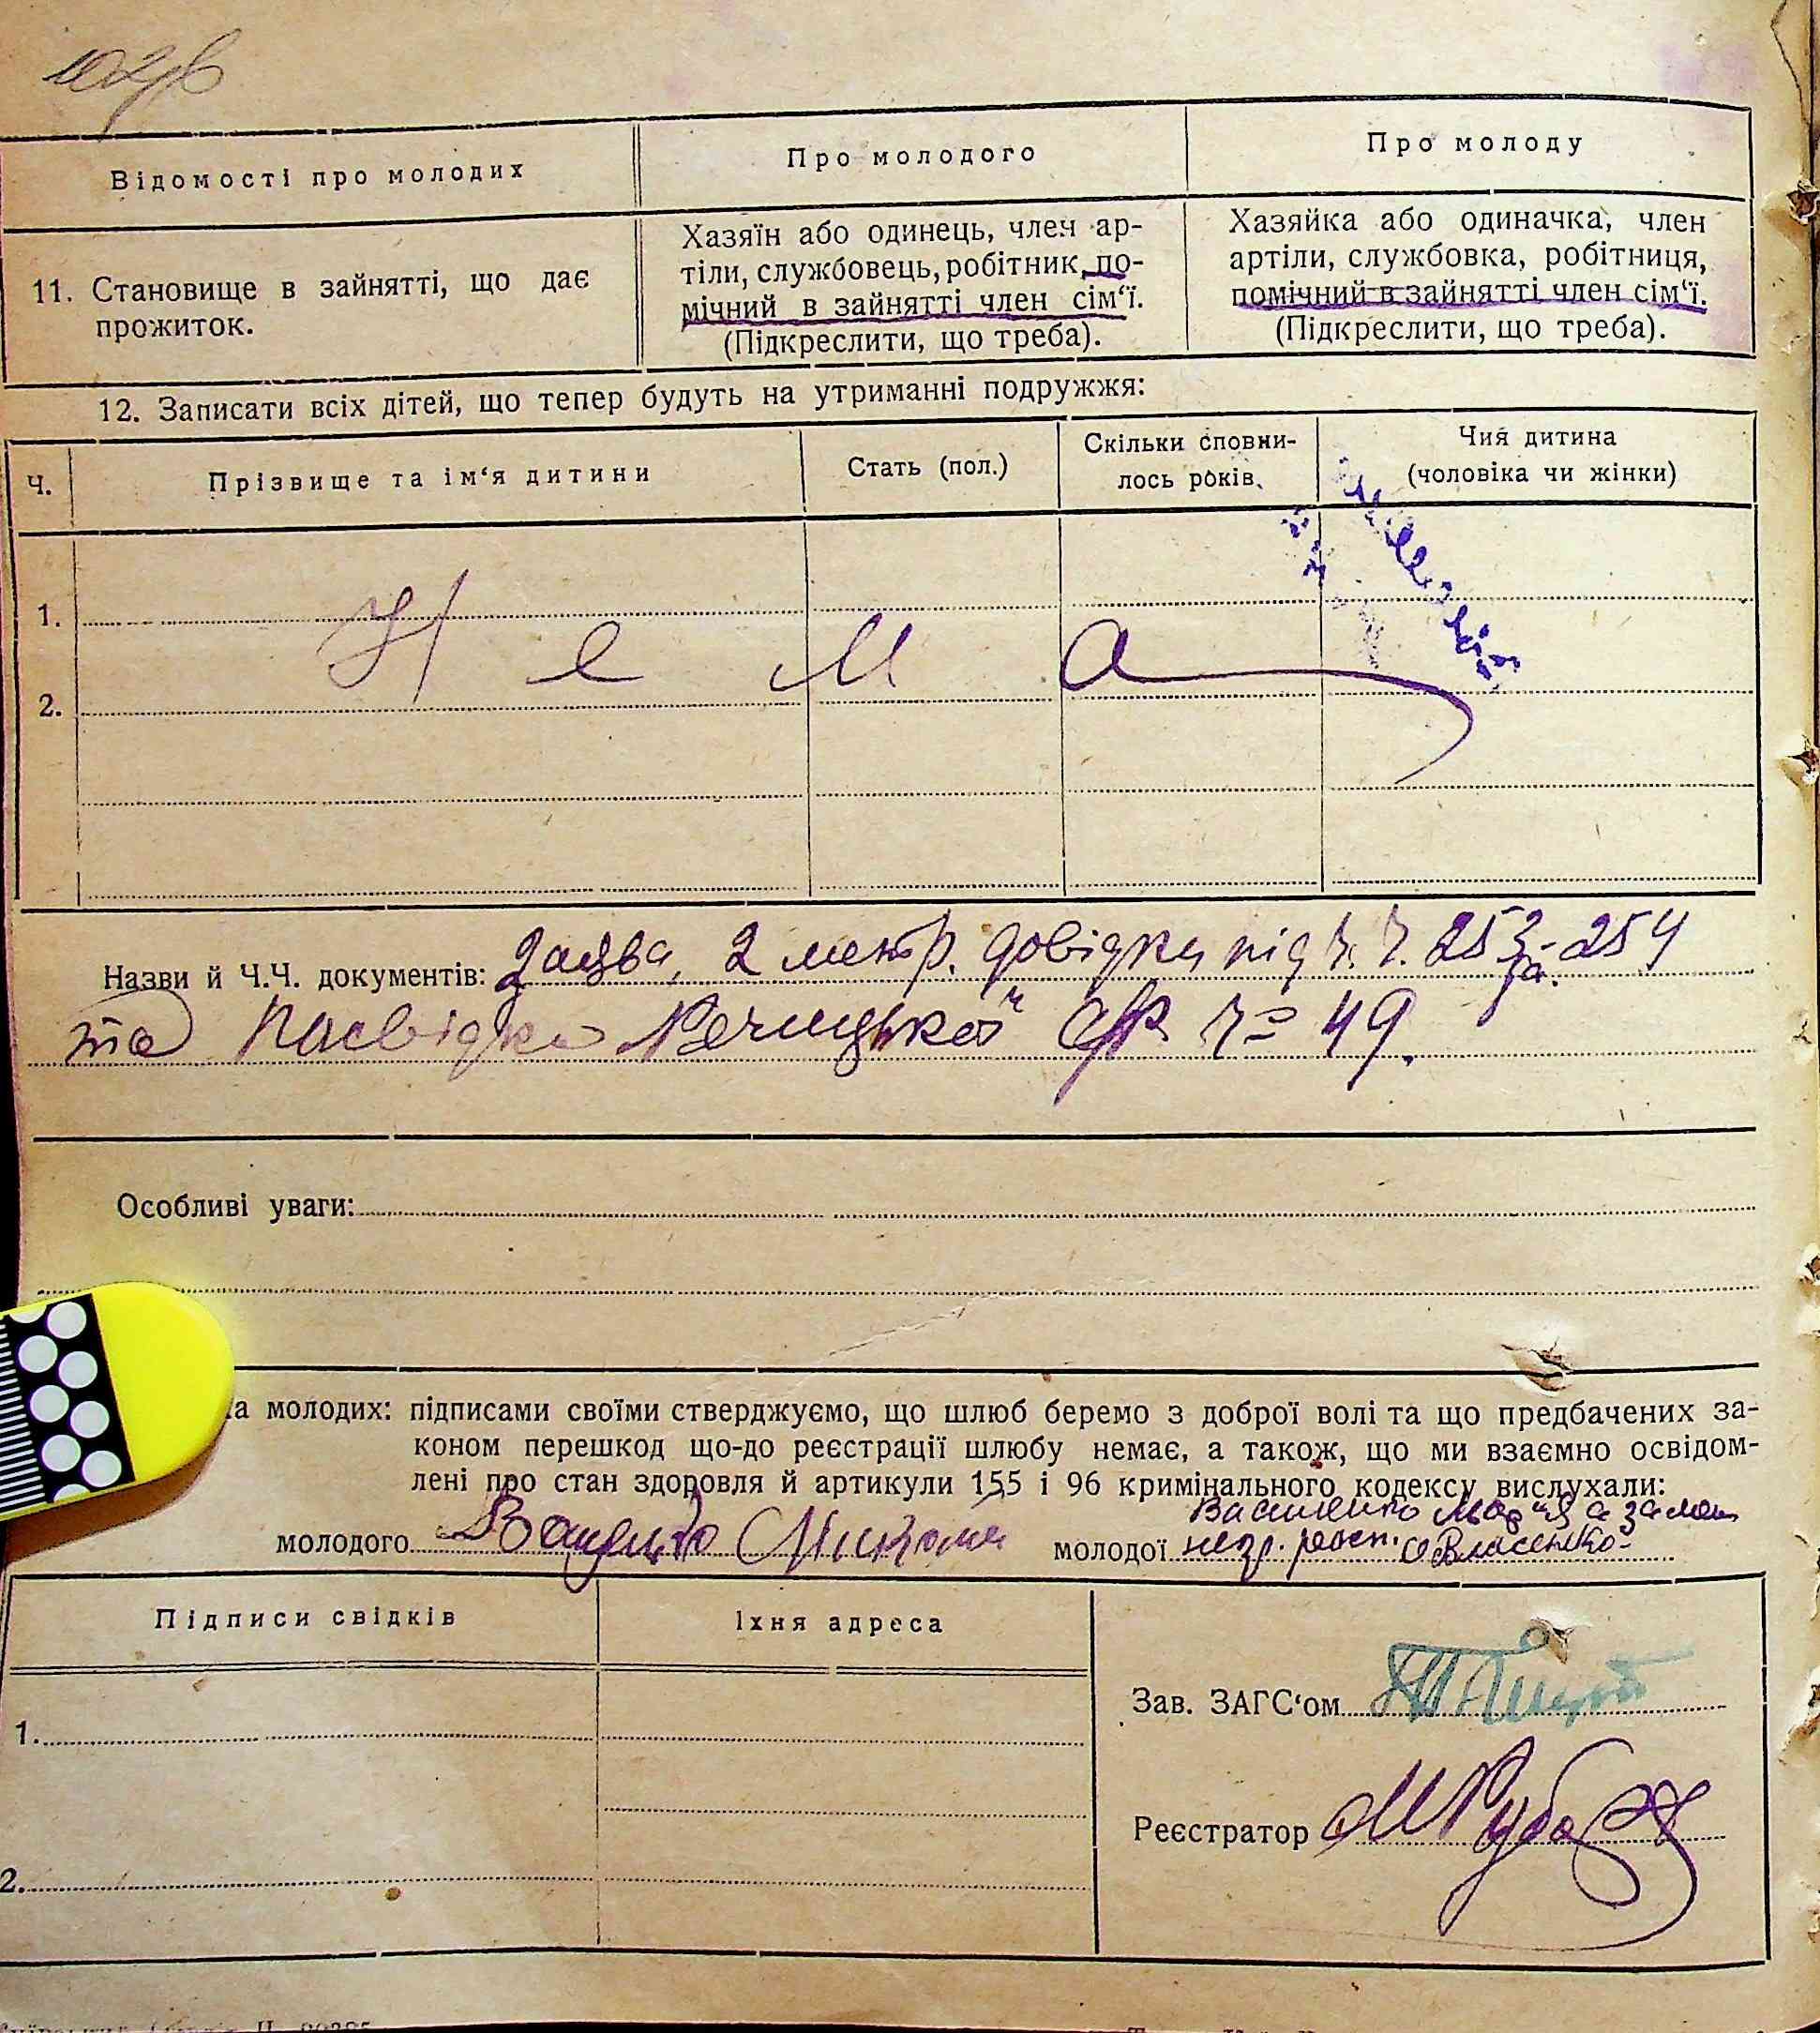 Відомості про молодих
Про молодого
Про молоду
11. Становище в зайнятті, що дає
прожиток.
Хазяїн або одинець, член ар-
тіли, службовець, робітник, по-
мічний в зайнятті член сім‘ї.
(Підкреслити, що треба).
Хазяйка або одиначка, член
артіли, службовка, робітниця,
помічний в зайнятті член сім‘ї.
(Підкреслити, що треба).
12. Записати всіх дітей, що тепер будуть на утриманні подружжя:
Ч.
Прізвище та ім‘я дитини
Стать (пол.)
Скільки сповни-
лось років.
Чия дитина
(чоловіка чи жінки)
1.
Нема
2.
Назви й Ч.Ч. документів: Заява, 2 метр. довідки під ч. ч. 253-254
та посвідка Речицької с/р ч= 49.
Особливі уваги:
а молодих: підписами своїми стверджуємо, що шлюб беремо з доброї волі та що предбачених за-
коном перешкод що-до реєстрації шлюбу немає, а також, що ми взаємно освідом-
лені про стан здоровля й артикули 155 і 96 кримінального кодексу вислухали:
молодого Ващенко Микола
молодої Василенко Марія а за
незр. розп. Власенко
Підписи свідків
Їхня адреса
1.
2.
Зав. ЗАГС‘ом
Реєстратор